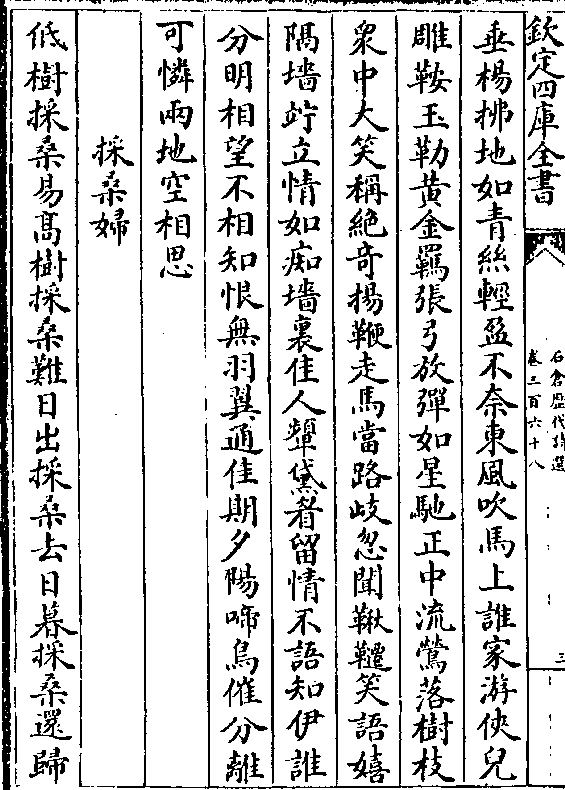 欽定四庫全書
石倉歷代詩選
卷三百六十八
三
垂楊拂地如青絲輕盈不奈東風吹馬上誰家游俠兒
雕鞍玉勒黄金羈張弓放彈如星馳正中流鶯落樹枝
衆中大笑稱絶奇揚鞭走馬當路岐忽聞鞦韆笑語嬉
隔墻竚立情如痴墻裏佳人顰黛眉留情不語知伊誰
分明相望不相知恨無羽翼通佳期夕陽啼烏催分離
可憐兩地空相思
採桑婦
低樹採桑易髙樹採桑難日出採桑去日暮採桑還歸